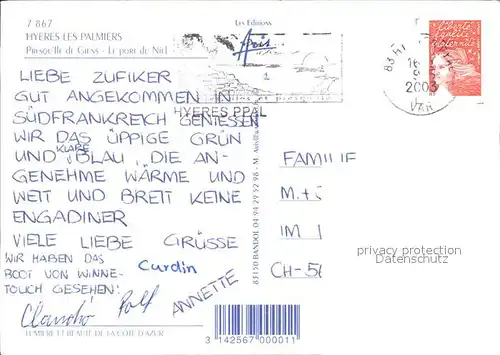 7 867
HYERES LES PALMIERS
PRESQU'ÎLE DE GIENS - LE PORT DU NIEL
Les Editions
Aris
LIEBE ZUFIKER
GUT ANGEKOMMEN IN
SÜDFRANKREICH GENIESSEN
WIR DAS ÜPPIGE GRÜN
UND KLARE BLAU, DIE AN-
GENEHME WÄRME UND
WEIT UND BREIT KEINE
ENGADINER
VIELE LIEBE GRÜSSE
WIR HABEN DAS
BOOT VON WINNE-
TOUCH GESEHEN!
Curdin
Rolf
ANNETTE
LUMIERE ET BEAUTE DE LA COTE D'AZUR
HYERES PPAL
83150 BANDOL 04 94 29 52 98
liberté
égalité
fraternité
83 HY
16
9
2003
VAR
FAMILIE
M.+
IM
CH-56
privacy protection
Datenschutz
3 142567 000011